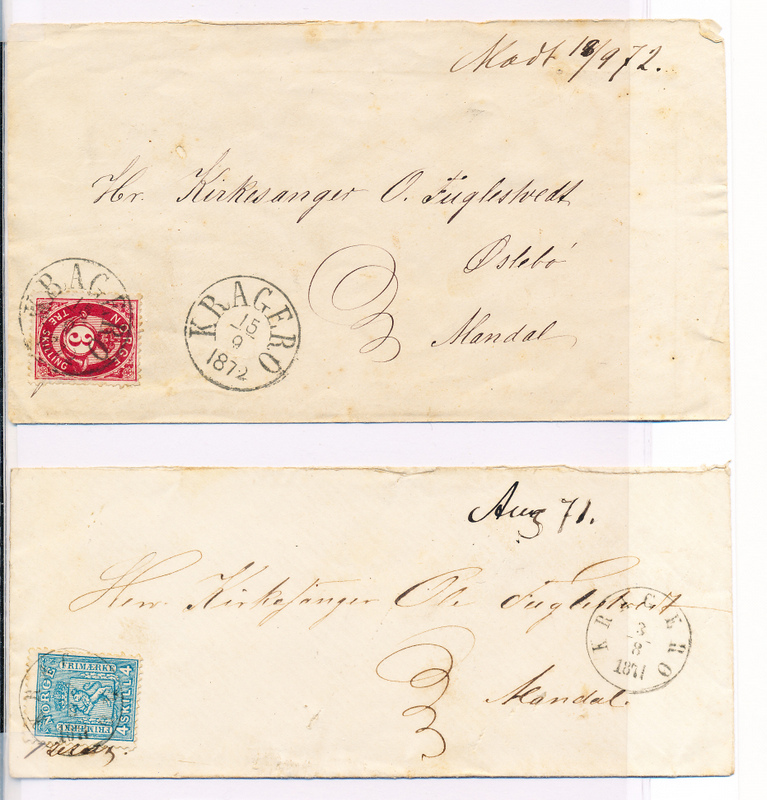 Modt. 18/9 72.
Hr. Kirkesanger O. Fuglestvedt
Øslebö
Mandal
KRAGERÖ
NORGE
3
TRE SKILLING
KRAGERO
15
9
1872
Aug 71.
Herr Kirkesanger Ole Fuglestvedt
Mandal.
KRAGERÖ
3
8
1871
FRIMÆRKE
NORGE
4 SKILL 4
FRIMÆRKE